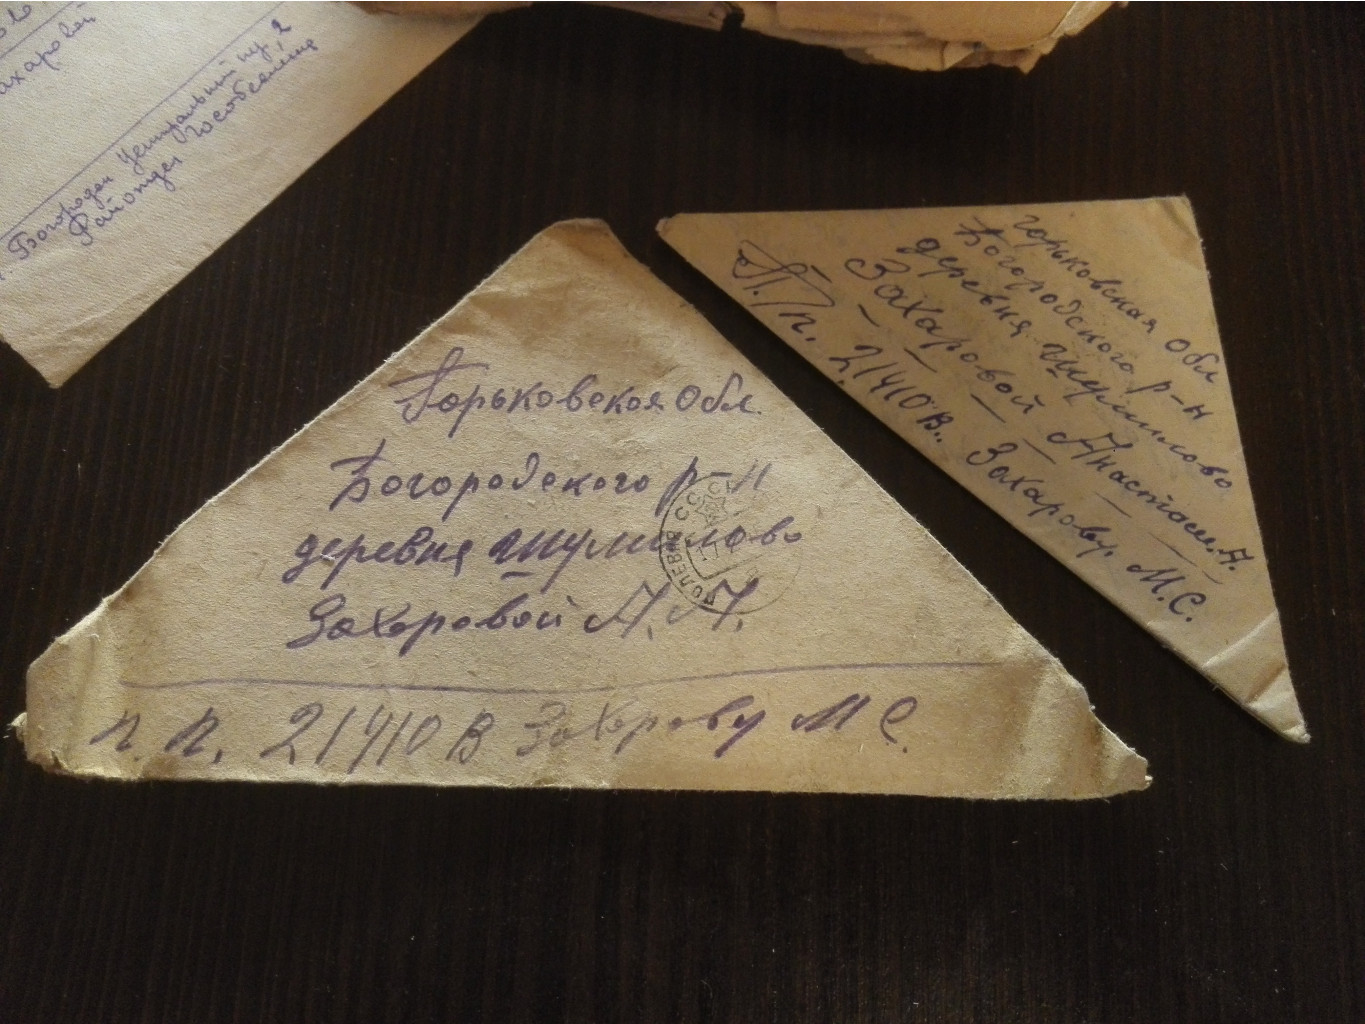 ахаровой
г. Богородск Центральный пу, 2
Райотдел Гособеспеч
Горьковская обл.
Богородского р-н
деревня Шумилово
Захаровой А. А.
п. п. 21410 В Захарову М С.
ПОЛЕВАЯ СССР
Горьковская обл
Богородского р-н
деревня Шумилово
Захаровой Анастасии. А.
П/п. 21410 В.. Захарову. М.С.